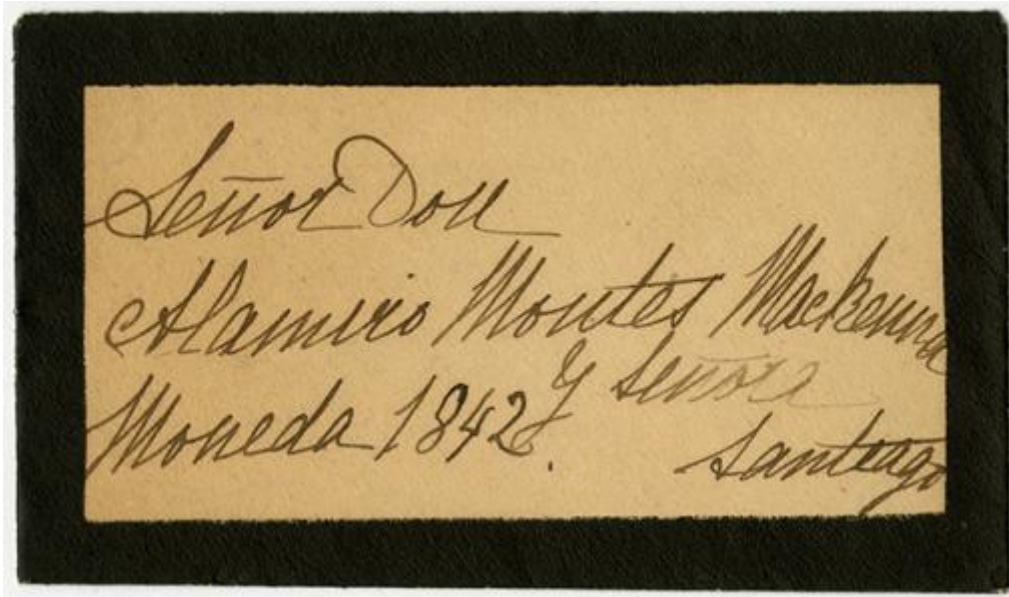 Señor Don
Alamiro Montes Mackenna
y Señora
Moneda 1842.
Santiago